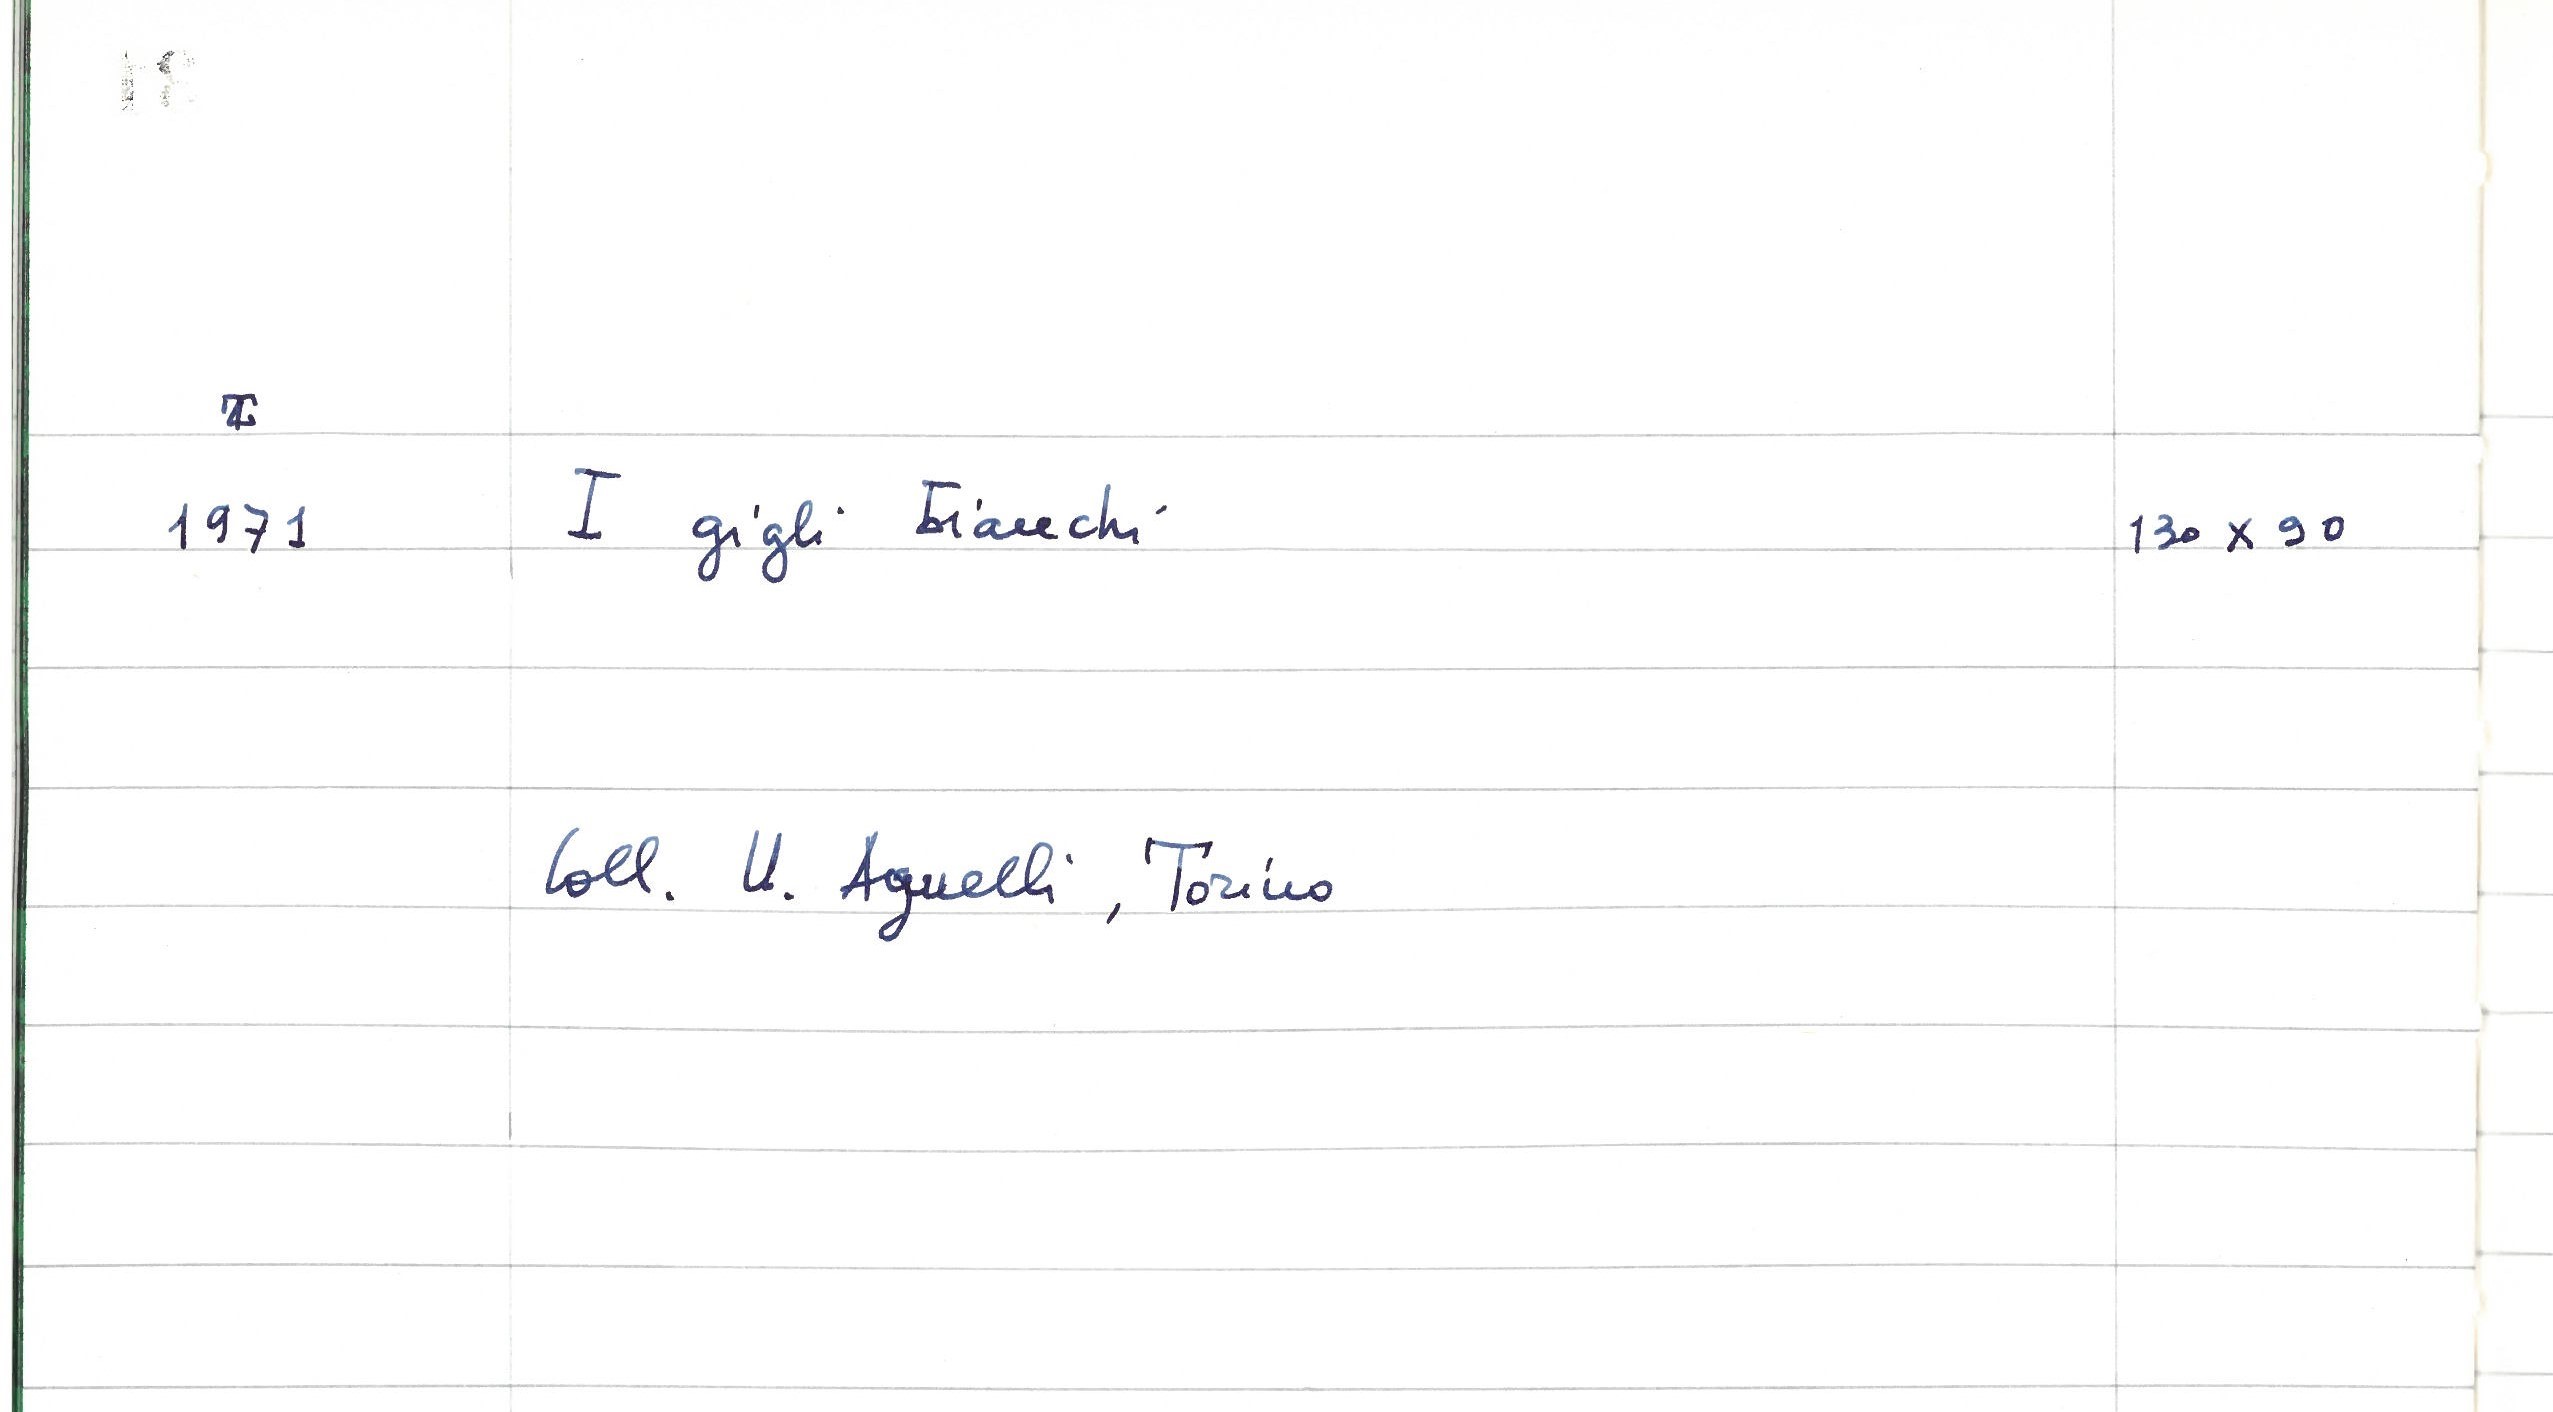 1971 I gigli bianchi 130 x 90
Coll. U. Agnelli, Torino